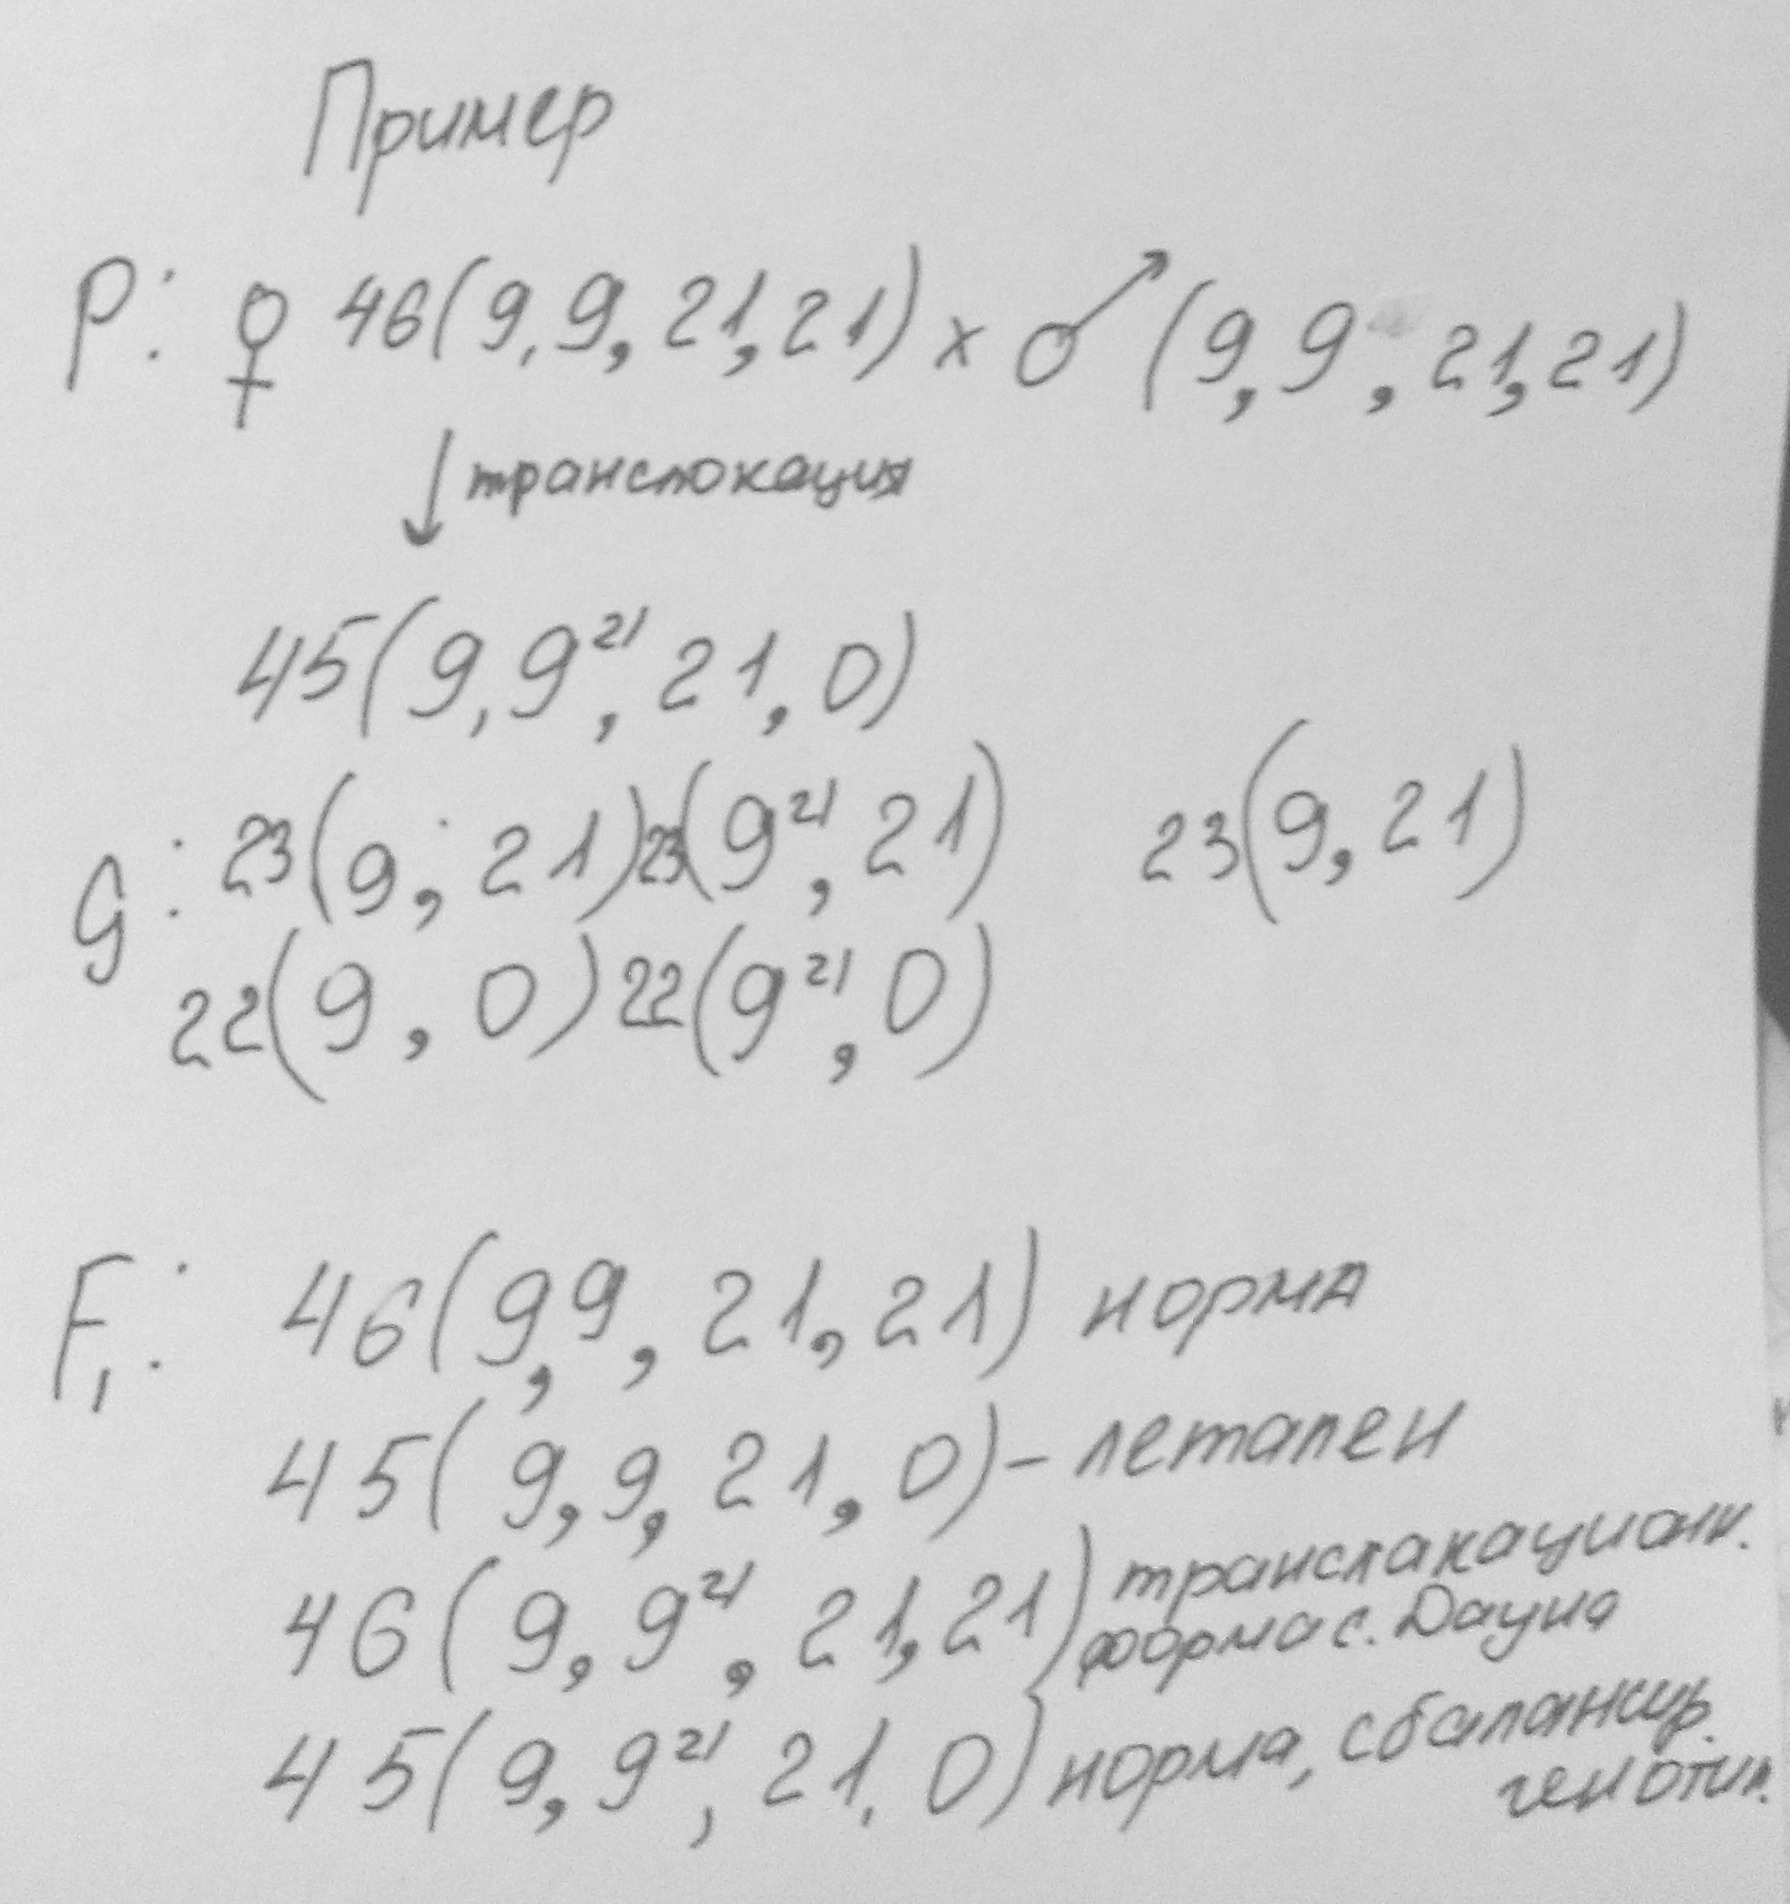 Пример
P: ♀ 46(9,9,21,21) x ♂ (9,9,21,21)
↓ транслокация
45(9,9²¹,21,0)
G: 23(9,21) 23(9²¹,21) 23(9,21)
22(9,0) 22(9²¹,0)
F₁: 46(9,9,21,21) норма
45(9,9,21,0) - летален
46(9,9²¹,21,21) транслакационн.
форма с. Дауна
45(9,9²¹,21,0) норма, сбалансир.
генотип.